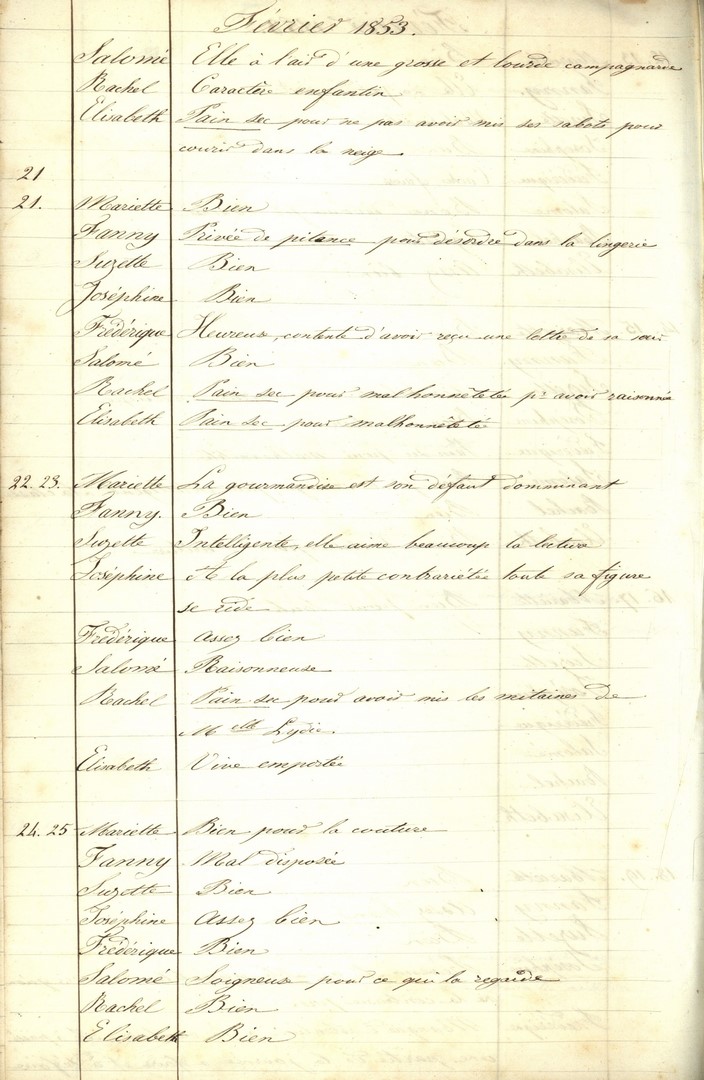 Février 1853.
Salomé Elle à l'air d'une grosse et lourde campagnarde
Rachel Caractère enfantin
Elisabeth Pain sec pour ne pas avoir mis ses sabots pour
courir dans la neige
21
21. Mariette Bien
Fanny Privée de pitance pour désordre dans la lingerie
Suzette Bien
Joséphine Bien
Frédérique Heureuse, contente d'avoir reçu une lettre de sa sœur
Salomé Bien
Rachel Pain sec pour malhonnêtetée pr avoir raisonnée
Elisabeth Pain sec pour malhonnêteté
22. 23. Mariette La gourmandise est son défaut domminant
Fanny. Bien
Suzette Intelligente, elle aime beaucoup la lecture
Joséphine A la plus petite contrariétée toute sa figure
se ride
Frédérique Assez bien
Salomé Raisonneuse
Rachel Pain sec pour avoir mis les mitaines de
Melle Lydie.
Elisabeth Vive emportée
24. 25 Mariette Bien pour la couture
Fanny Mal disposée
Suzette Bien
Joséphine Assez bien
Frédérique Bien
Salomé Soigneuse pour ce qui la regarde
Rachel Bien
Elisabeth Bien